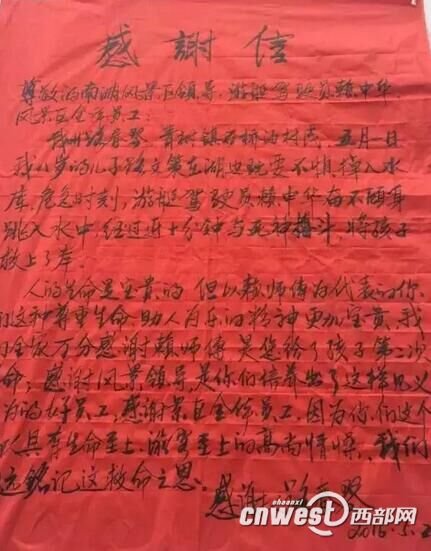 感謝信
尊敬的南湖风景区领导、游艇驾驶员赖中华、
风景区全体员工:
村民,五月一日
我八岁的儿子 在湖边玩耍不慎掉入水
库,危急时刻,游艇驾驶员赖中华奋不顾身
跳入水中,经过近十分钟与死神搏斗,将孩子
救上了岸。
人的生命是宝贵的,但以赖师傅为代表的你
的这种尊重生命、助人为乐的精神更加宝贵,我
们全家万分感谢赖师傅,是您给了孩子第二次
命;感谢风景领导,是你们培养出了这样见义
为的好员工,感谢景区全体员工,因为你们这个
以具有生命至上、游客至上的高尚情操,我们
远铭记这救命之恩。
感谢人
2016.5.2
cnwest西部网